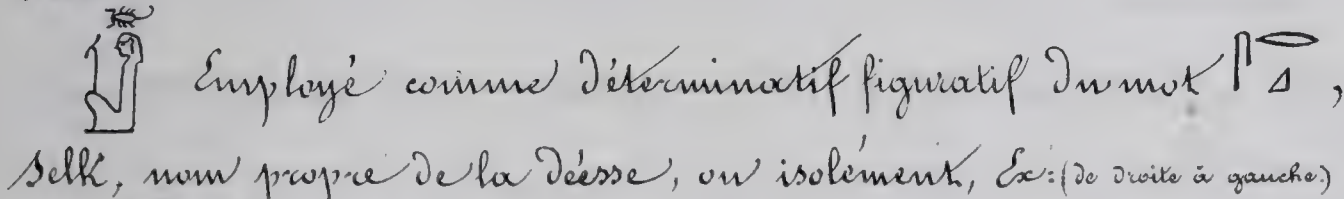 𓁦 Employé comme déterminatif figuratif du mot 𓋴𓂋𓈎,
Selk, nom propre de la déesse, ou isolément, Ex: (de droite à gauche.)